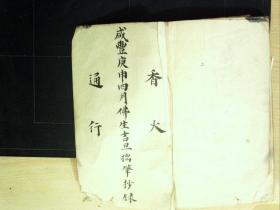 香火
咸豐庚申四月佛生吉旦搦筆抄錄
通行